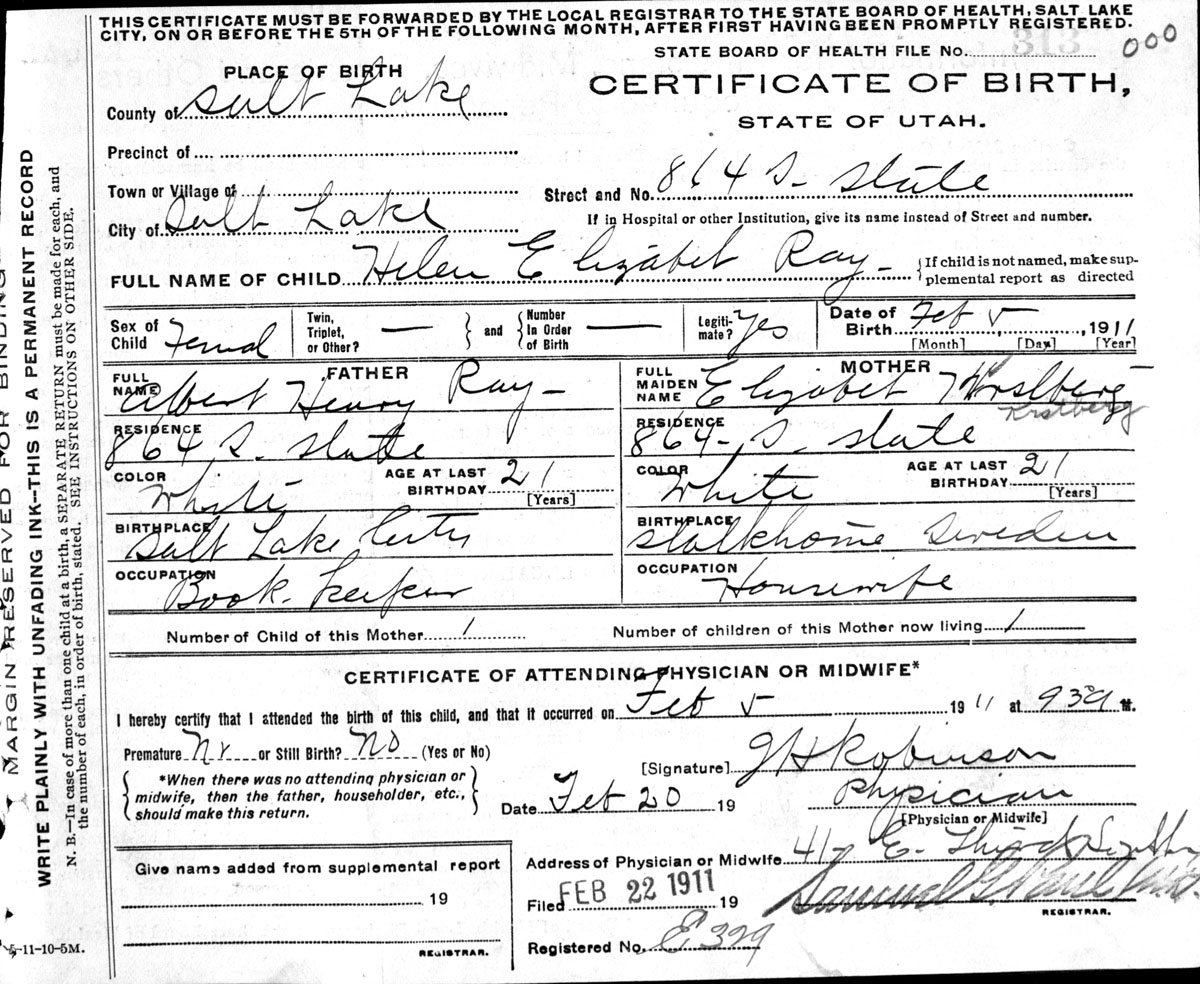 THIS CERTIFICATE MUST BE FORWARDED BY THE LOCAL REGISTRAR TO THE STATE BOARD OF HEALTH, SALT LAKE
CITY, ON OR BEFORE THE 5TH OF THE FOLLOWING MONTH, AFTER FIRST HAVING BEEN PROMPTLY REGISTERED.
STATE BOARD OF HEALTH FILE No. 313 000
PLACE OF BIRTH
CERTIFICATE OF BIRTH,
County of Salt Lake
STATE OF UTAH.
Precinct of
Town or Village of
Street and No. 864 S. State
City of Salt Lake
If in Hospital or other Institution, give its name instead of Street and number.
FULL NAME OF CHILD Helen Elizabet Ray
{If child is not named, make sup-
plemental report as directed
Sex of Child Femal
Twin, Triplet, or Other? —
and
Number In Order of Birth —
Legiti-mate? Yes
Date of Birth Feb 5, 1911
[Month] [Day] [Year]
FATHER
FULL NAME Albert Henry Ray
RESIDENCE 864 S. State
COLOR White
AGE AT LAST BIRTHDAY 21 [Years]
BIRTHPLACE Salt Lake City
OCCUPATION Book-keeper
MOTHER
FULL MAIDEN NAME Elizabet
RESIDENCE 864- S. State
COLOR White
AGE AT LAST BIRTHDAY 21 [Years]
BIRTHPLACE Stalkhome Sweden
OCCUPATION Housewife
Number of Child of this Mother 1
Number of children of this Mother now living 1
CERTIFICATE OF ATTENDING PHYSICIAN OR MIDWIFE*
I hereby certify that I attended the birth of this child, and that it occurred on Feb 5 1911 at M.
Premature or Still Birth? No (Yes or No)
{*When there was no attending physician or
midwife, then the father, householder, etc.,
should make this return.}
[Signature] Robinson
Date Feb 20 19
Physician
[Physician or Midwife]
Address of Physician or Midwife E. Third
Filed FEB 22 1911 19
REGISTRAR.
Registered No. E 329
Give name added from supplemental report
19
REGISTRAR.
5-11-10-5M.
MARGIN RESERVED FOR BINDING
WRITE PLAINLY WITH UNFADING INK--THIS IS A PERMANENT RECORD
N. B.—In case of more than one child at a birth, a SEPARATE RETURN must be made for each, and
the number of each, in order of birth, stated. SEE INSTRUCTIONS ON OTHER SIDE.